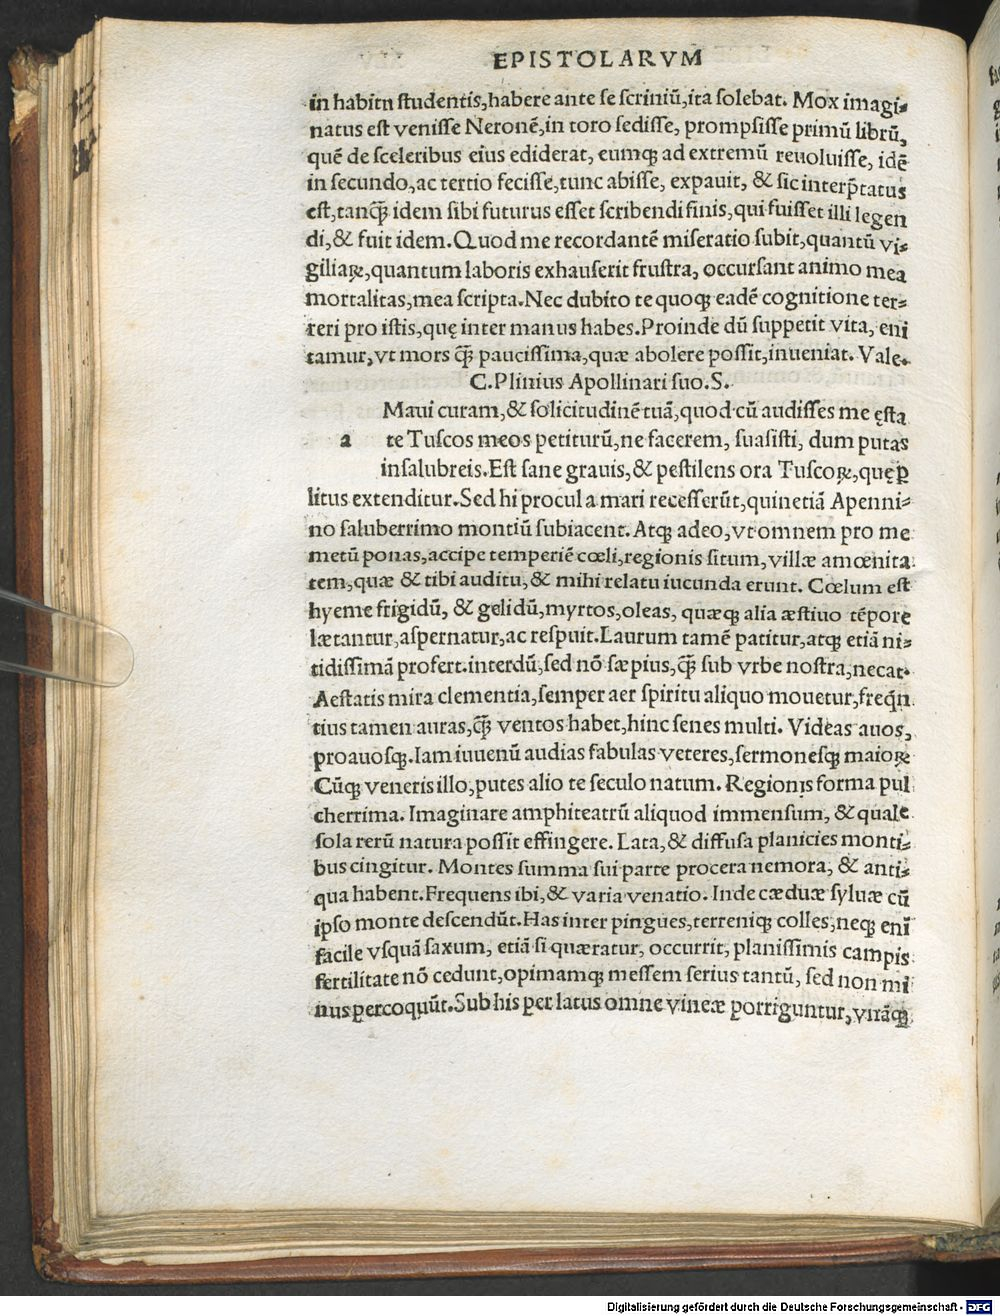 EPISTOLARVM
in habitu ſtudentis,habere ante ſe ſcriniū,ita ſolebat. Mox imagi-
natus eſt veniſſe Neronē,in toro ſediſſe, prompſiſſe primū librū,
quē de ſceleribus eius ediderat, eumqꝫ ad extremū reuoluiſſe, idē
in ſecundo,ac tertio feciſſe,tunc abiſſe, expauit, & ſic interp̄tatus
eſt,tanq̄ꝫ idem ſibi futurus eſſet ſcribendi finis,qui fuiſſet illi legen
di,& fuit idem.Quod me recordantē miſeratio ſubit,quantū vi-
giliaꝝ,quantum laboris exhauſerit fruſtra, occurſant animo mea
mortalitas,mea ſcripta.Nec dubito te quoqꝫ eadē cognitione ter-
reri pro iſtis,quę inter manus habes.Proinde dū ſuppetit vita, eni
tamur,vt mors q̄ꝫ pauciſſima,quæ abolere poſſit,inueniat. Vale.
C.Plinius Apollinari ſuo.S.
Maui curam,& ſolicitudinē tuā,quod cū audiſſes me ęſta
a te Tuſcos meos petiturū,ne facerem, ſuaſiſti, dum putas
inſalubreis.Eſt ſane grauis,& peſtilens ora Tuſcoꝝ,quę ꝑ
litus extenditur.Sed hi procul a mari receſſerūt,quinetiā Apenni-
no ſaluberrimo montiū ſubiacent. Atqꝫ adeo,vt omnem pro me
metū ponas,accipe temperiē cœli,regionis ſitum,villæ amœnita
tem,quæ & tibi auditu,& mihi relatu iucunda erunt. Cœlum eſt
hyeme frigidū, & gelidū,myrtos,oleas, quæqꝫ alia æſtiuo tēpore
lætantur,aſpernatur,ac reſpuit.Laurum tamē patitur,atqꝫ etiā ni-
tidiſſimā profert.interdū,ſed nō ſæpius,q̄ꝫ ſub vrbe noſtra,necat.
Aeſtatis mira clementia,ſemper aer ſpiritu aliquo mouetur,freq̄n
tius tamen auras,q̄ꝫ ventos habet,hinc ſenes multi. Videas auos,
proauoſqꝫ.Iam iuuenū audias fabulas veteres,ſermoneſqꝫ maioꝝ
Cūqꝫ veneris illo,putes alio te ſeculo natum. Regionis forma pul
cherrima. Imaginare amphiteatrū aliquod immenſum, & quale
ſola rerū natura poſſit effingere. Lata,& diffuſa planicies monti-
bus cingitur. Montes ſumma ſui parte procera nemora, & anti-
qua habent.Frequens ibi,& varia venatio. Inde cæduæ ſyluæ cū
ipſo monte deſcendūt.Has inter pingues,terreniqꝫ colles,neqꝫ enī
facile vſquā ſaxum, etiā ſi quæratur, occurrit, planiſſimis campis
fertilitate nō cedunt,opimamqꝫ meſſem ſerius tantū, ſed non mi
nus percoquūt.Sub his per latus omne vineæ porriguntur,vnāqꝫ
Digitalisierung gefördert durch die Deutsche Forschungsgemeinschaft - DFG